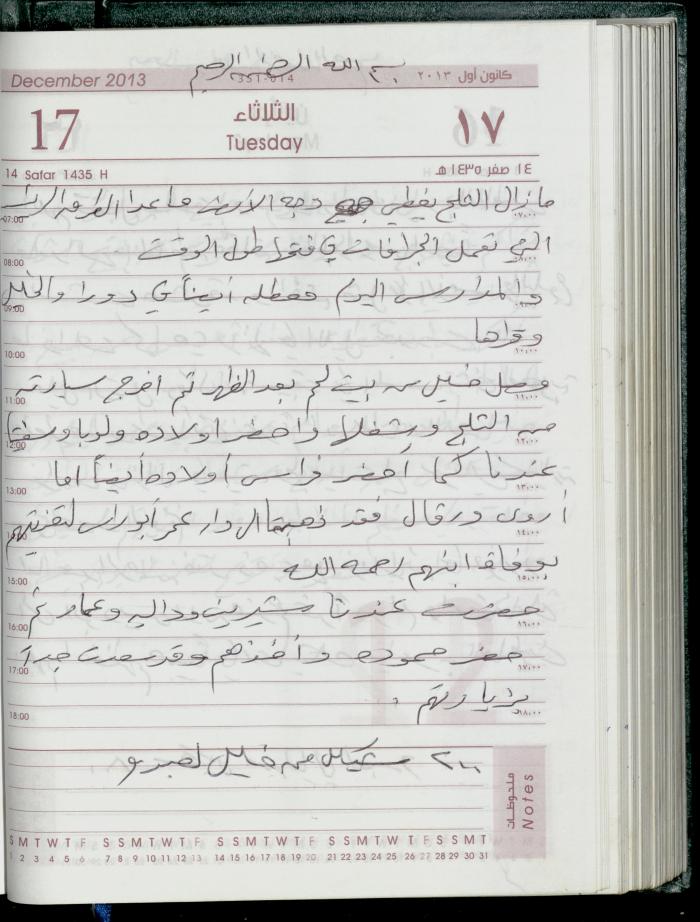 بسم الله الرحمن الرحيم
December 2013
كانون أول ٢٠١٣
17
الثلاثاء
Tuesday
١٧
14 Safar 1435 H
١٤ صفر ١٤٣٥ هـ
مازال الثلج يغطي وجه الأرض ماعدا الطرق
07:00 ٠٧:٠٠
التي تعمل الجرافات في فتحها طول الوقت
08:00 ٠٨:٠٠
والمدارس اليوم معطله أيضاً في دورا والخليل
09:00
وقراها
10:00 ١٠:٠٠
وصل خليل من بيت لحم بعد الظهر ثم اخرج سيارته
11:00 ١١:٠٠
من الثلج وشغلها واحضر اولاده
12:00 ١٢:٠٠
عندنا كما أحضر فراس أولاده أيضاً اما
13:00 ١٣:٠٠
أروى ورقال فقد ذهبتا الى دار عمر أبوراس لتعزيتهم
١٤:٠٠
بوفاة ابنهم رحمه الله
15:00 ١٥:٠٠
حضرت عندنا شيرين وداليه وعمار ثم
16:00 ١٦:٠٠
حضر حموده وأخذهم وقد سعدت جداً
17:00 ١٧:٠٠
بزيارتهم .
18:00 ١٨:٠٠
٢٠٠ شيكل من خليل
ملحوظات
Notes
S M T W T F S S M T W T F S S M T W T F S S M T W T F S S M T
1 2 3 4 5 6 7 8 9 10 11 12 13 14 15 16 17 18 19 20 21 22 23 24 25 26 27 28 29 30 31